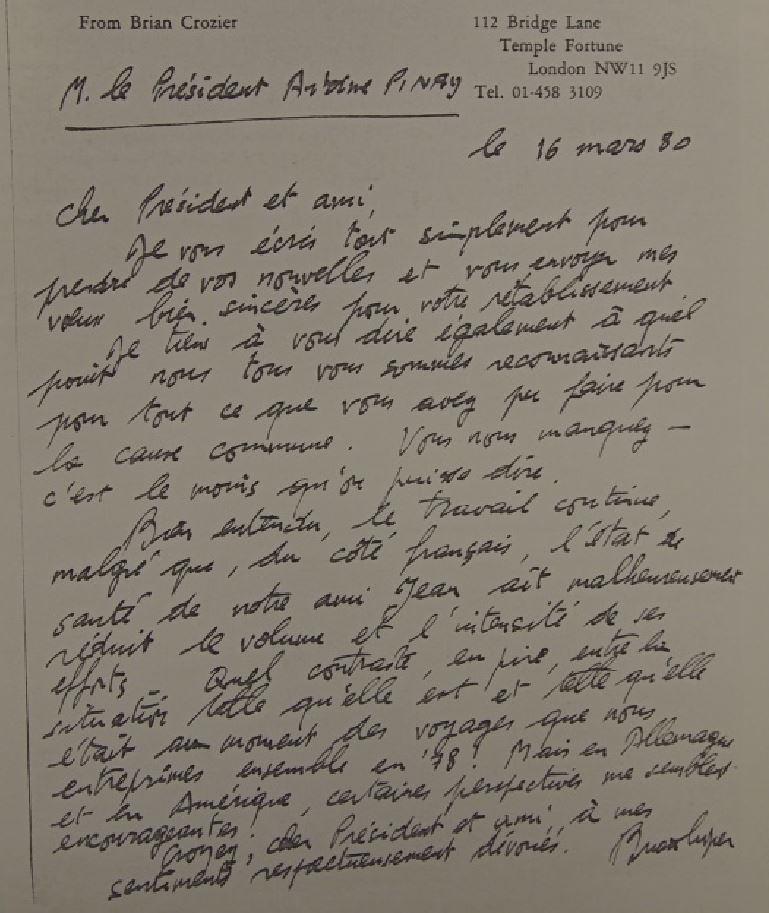 From Brian Crozier
112 Bridge Lane
Temple Fortune
London NW11 9JS
Tel. 01-458 3109
M. le Président Antoine PINAY
le 16 mars 80
Cher Président et ami,
Je vous écris tout simplement pour
prendre de vos nouvelles et vous envoyer mes
vœux bien sincères pour votre rétablissement
Je tiens à vous dire également à quel
point nous tous vous sommes reconnaissants
pour tout ce que vous avez pu faire pour
la cause commune. Vous nous manquez —
c'est le moins qu'on puisse dire.
Bien entendu, le travail continue,
malgré que, du côté français, l'état de
santé de notre ami Jean ait malheureusement
réduit le volume et l'intensité de ses
efforts. Quel contraste, en pire, entre la
situation telle qu'elle est et telle qu'elle
était au moment des voyages que nous
entreprîmes ensemble en '78! Mais en Allemagne
et en Amérique, certaines perspectives me semblent
encourageantes.
Croyez, cher Président et ami, à mes
sentiments respectueusement dévoués.